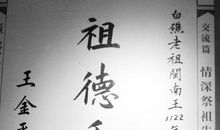 交流篇 情深祭祖
白礁老祖閩南王1122年
祖德
王金